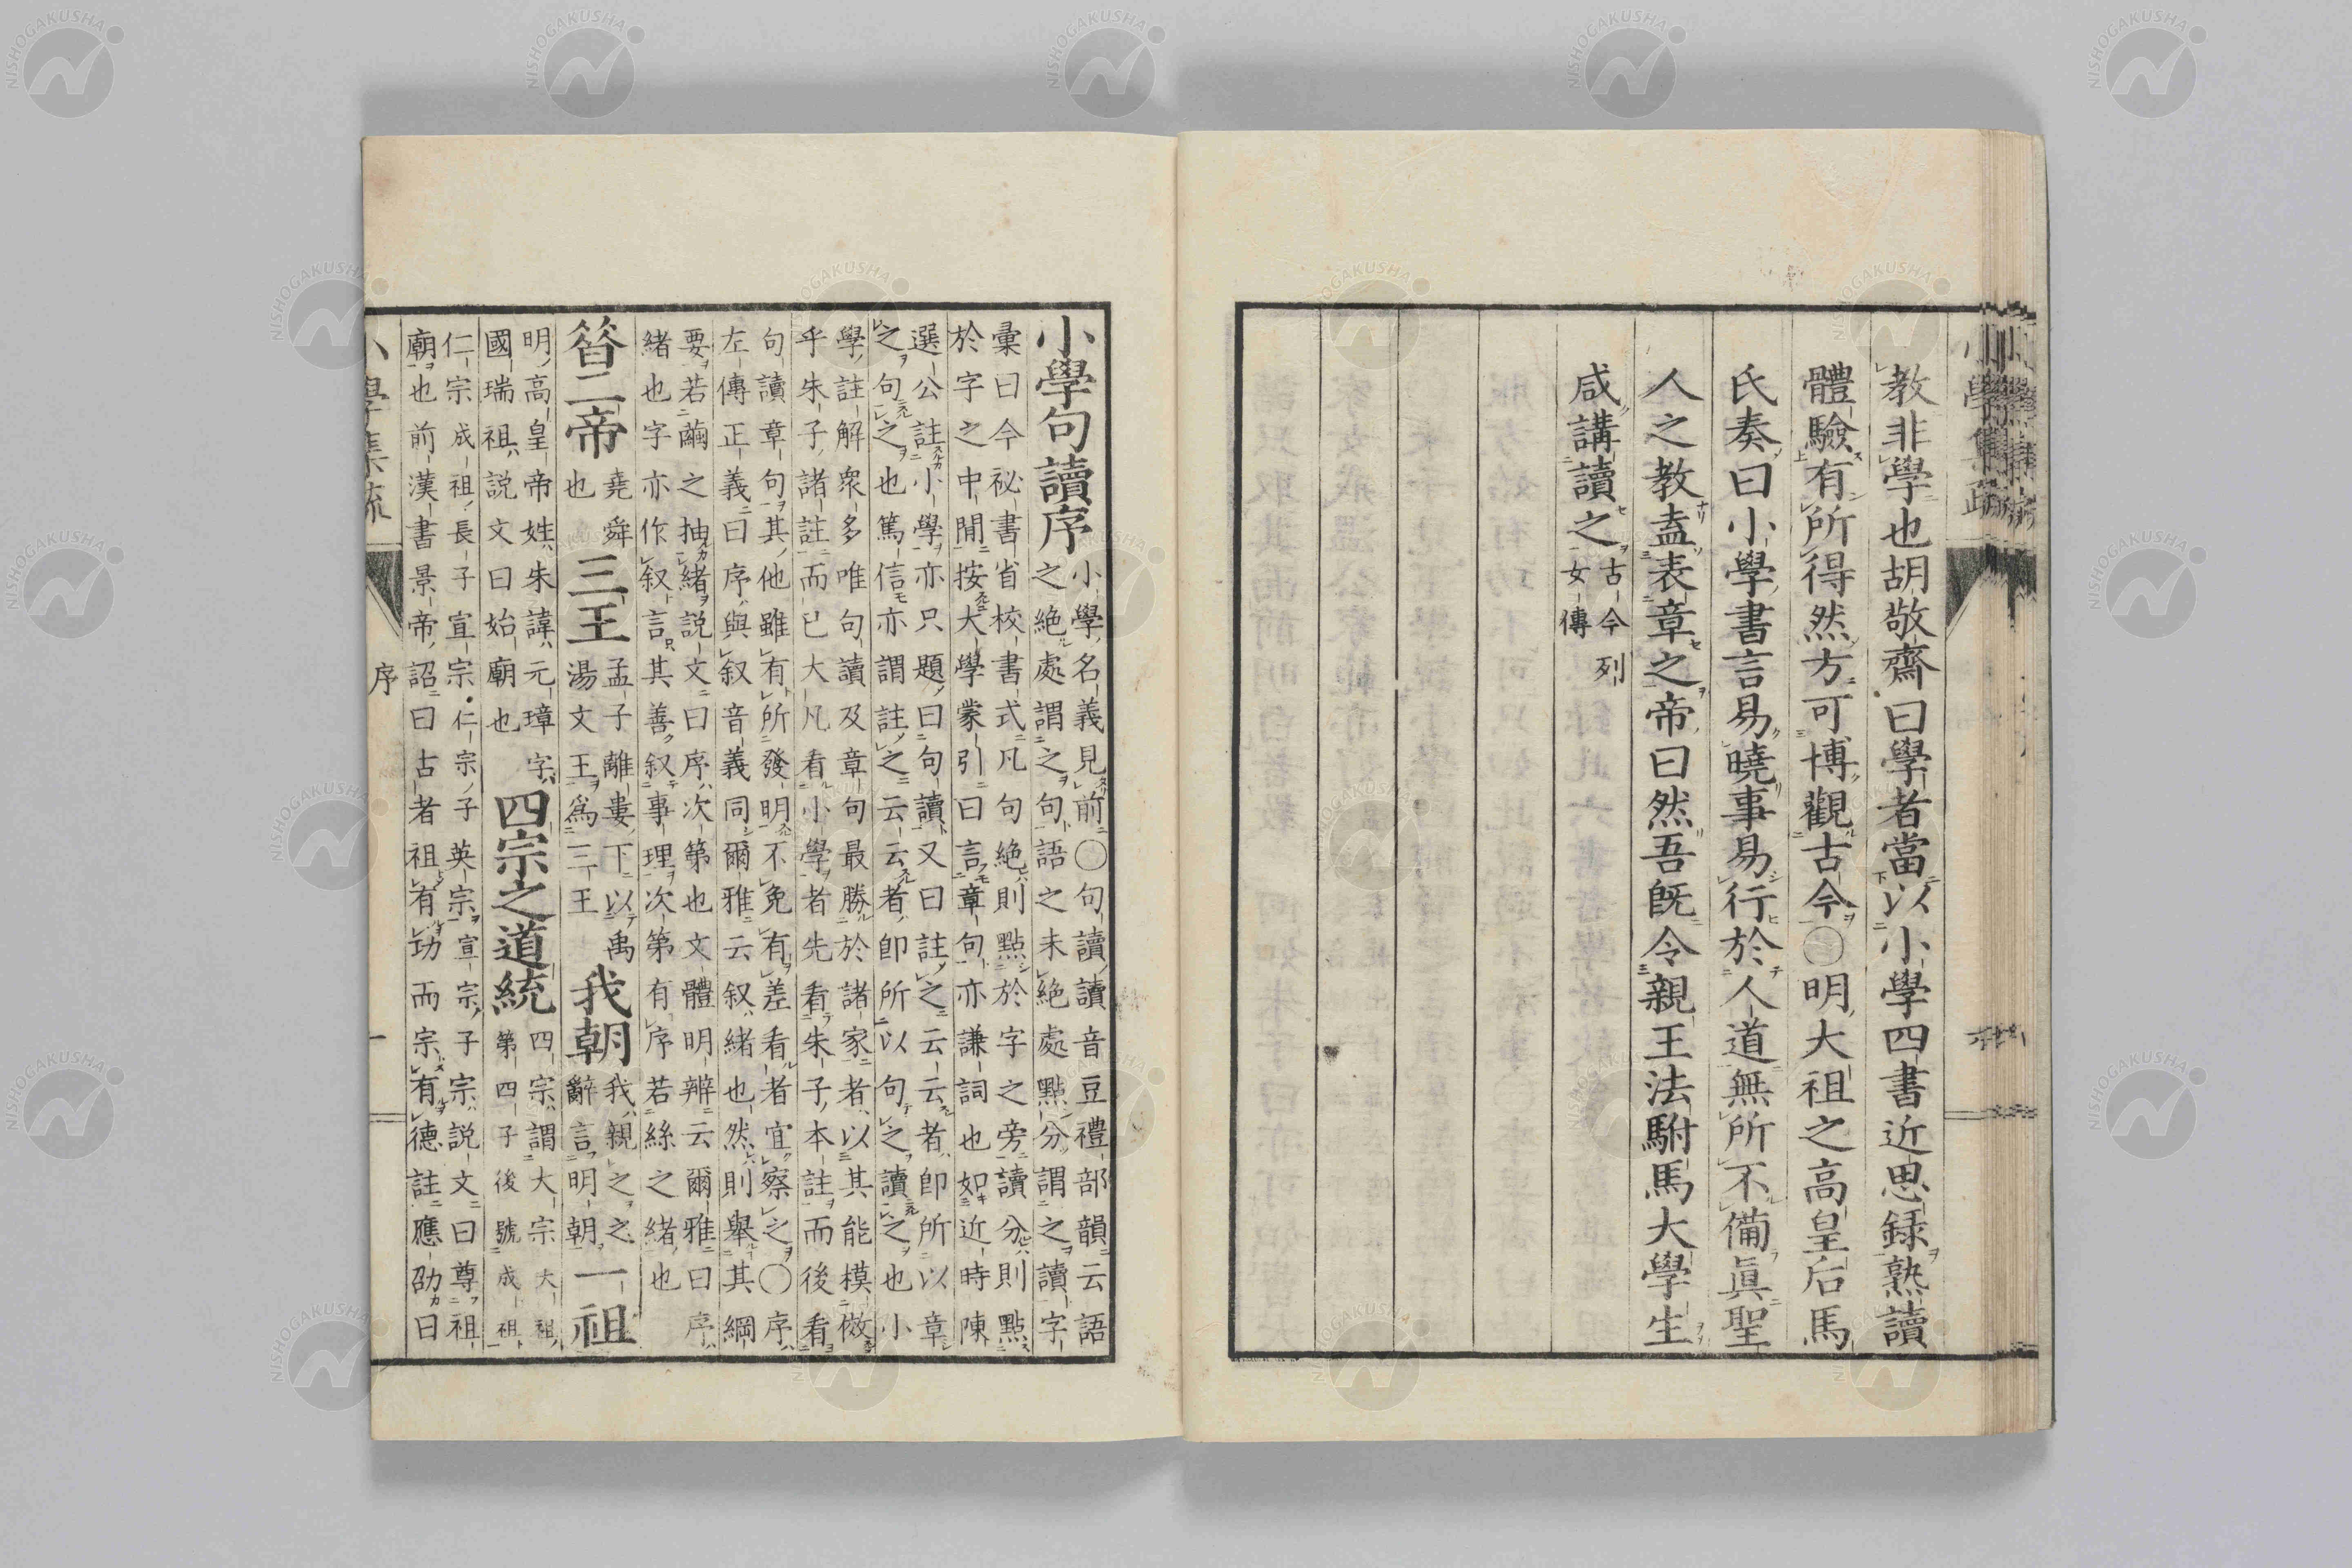 教非學也胡敬齋曰學者當以小學四書近思録熟讀
體驗有所得然方可博觀古今〇明大祖之高皇后馬
氏奏曰小學書言易曉事易行於人道無所不備眞聖
人之教盍表章之帝曰然吾既令親王法駙馬大學生
咸講讀之
古今列
女傳
小學句讀序
小學名義見前〇句讀讀音豆禮部韻云語
之絶處謂之句語之未絶處點分謂之讀字
彙曰今祕書省校書式凡句絶則點於字之旁讀分則點
於字之中間按大學蒙引曰言章句亦謙詞也如近時陳
選公註小學亦只題曰句讀又曰註之云云者即所以章
之句之也篤信亦謂註之云云者即所以句之讀之也小
學註解衆多唯句讀及章句最勝於諸家者以其能模倣
乎朱子諸註而已大凡看小學者先看朱子本註而後看
句讀章句其他雖有所發明不免有差看者宜察之〇序
左傳正義曰序與叙音義同爾雅云叙緒也然則舉其綱
要若繭之抽緒說文曰序次第也文體明辨云爾雅曰序
緒也字亦作叙言其善叙事理次第有序若絲之緒也
簪二帝
堯舜
也
三王
孟子離婁下以禹
湯文王爲三王
我朝
我親之之
辭言明朝
一祖
明高皇帝姓朱諱元璋字
國瑞祖說文曰始廟也
四宗之道統
四宗謂大宗大祖
第四子後號成祖
仁宗成祖長子宣宗仁宗子英宗宣宗子宗說文曰尊祖
廟也前漢書景帝詔曰古者祖有功而宗有德註應劭曰
小學集疏
序
一